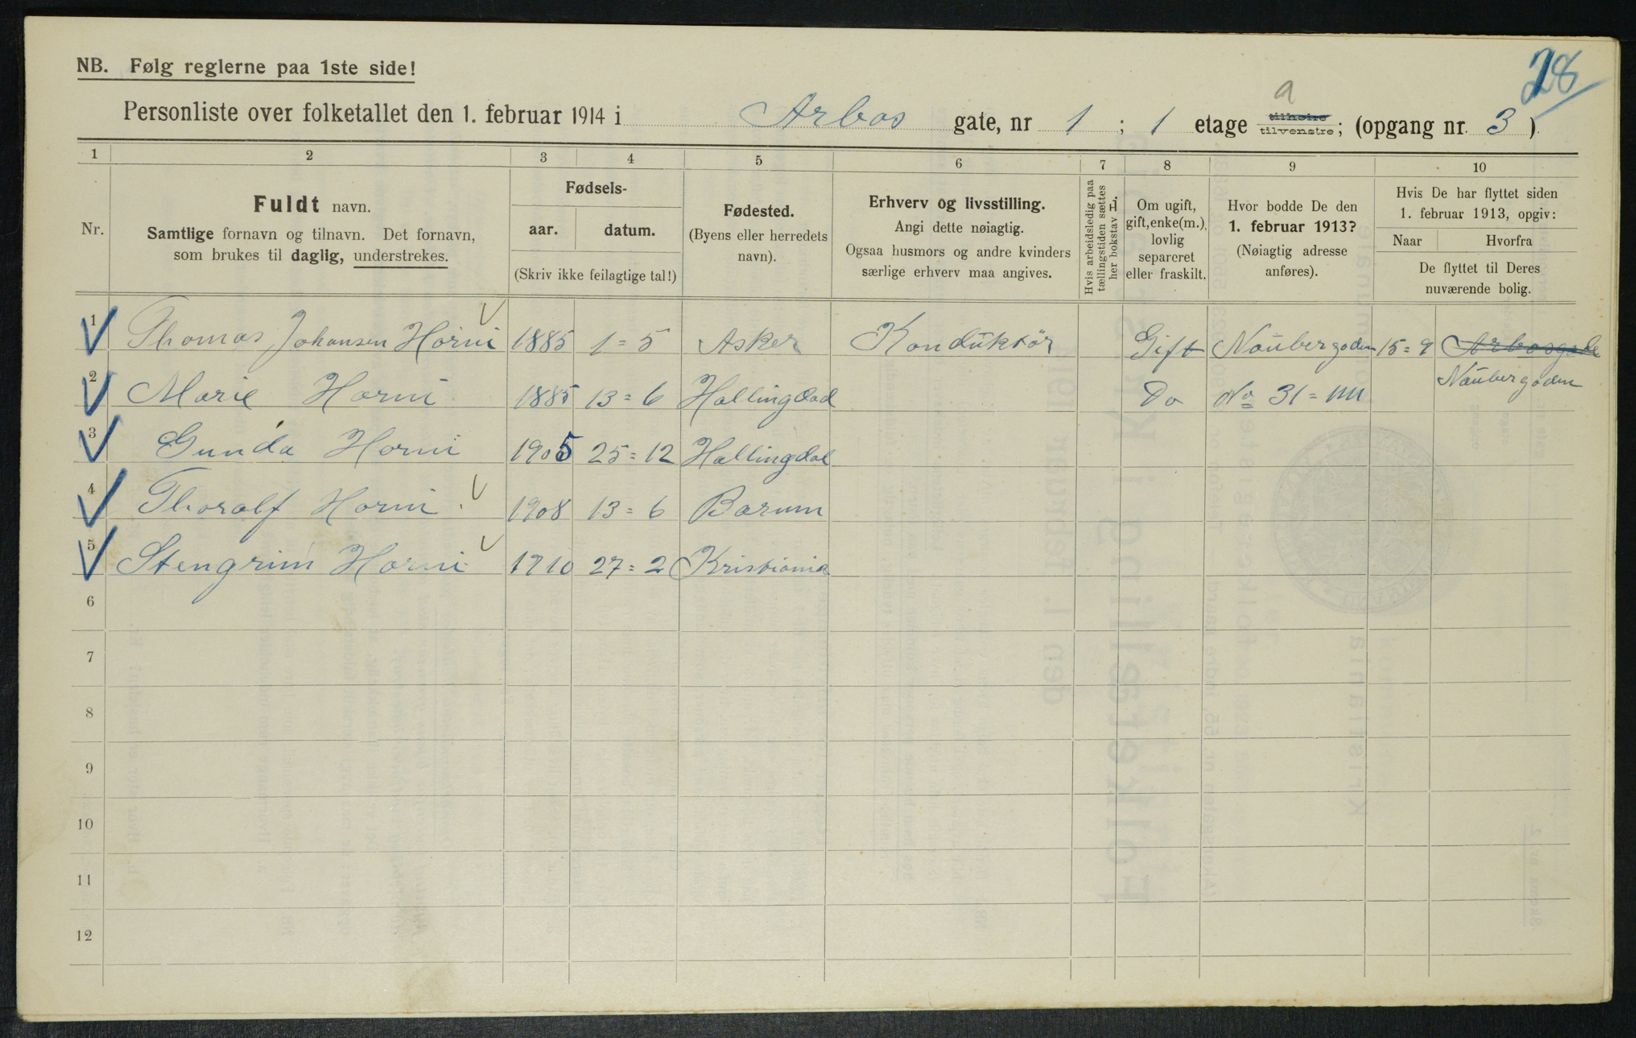 28
NB. Følg reglerne paa 1ste side!
Personliste over folketallet den 1. februar 1914 i Arbos gate, nr 1 ; 1 etage tilhøire tilvenstre a ; (opgang nr. 3 )
1 2 3 4 5 6 7 8 9 10
Nr.
Fuldt navn.
Samtlige fornavn og tilnavn. Det fornavn,
som brukes til daglig, understrekes.
Fødsels-
aar. datum.
(Skriv ikke feilagtige tal!)
Fødested.
(Byens eller herredets
navn).
Erhverv og livsstilling.
Angi dette nøiagtig.
Ogsaa husmors og andre kvinders
særlige erhverv maa angives.
Hvis arbeidsledig paa
tællingstiden sættes
her bokstav L.
Om ugift,
gift, enke(m.),
lovlig
separeret
eller fraskilt.
Hvor bodde De den
1. februar 1913?
(Nøiagtig adresse
anføres).
Hvis De har flyttet siden
1. februar 1913, opgiv:
Naar Hvorfra
De flyttet til Deres
nuværende bolig.
1 Thomas Johansen Horni 1885 1=5 Asker Konduktör Gift Naubergaden 15=9 Arbosgate
2 Marie Horni 1885 13=6 Hallingdal Do No 31=IIII Naubergaden
3 Gunda Horni 1905 25=12 Hallingdal
4 Thoralf Horni 1908 13=6 Barum
5 Stengrim Horni 1910 27=2 Kristiania
6
7
8
9
10
11
12